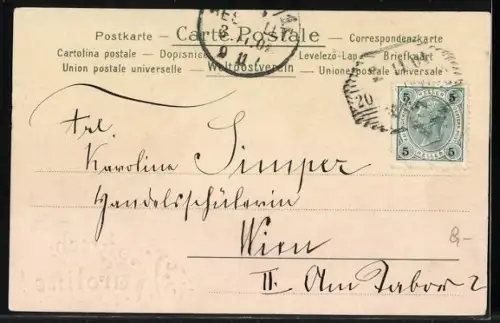 Postkarte — Carte Postale — Correspondenzkarte
Cartolina postale — Dopisnice — Levelező-Lap — Briefkaart
Union postale universelle — Weltpostverein — Unione postale universale
5 5
HELLER
5 HELLER 5
20
Frl.
Karolina Simper
Handelsschülerin
Wien
II. Am Tabor 2
8,-